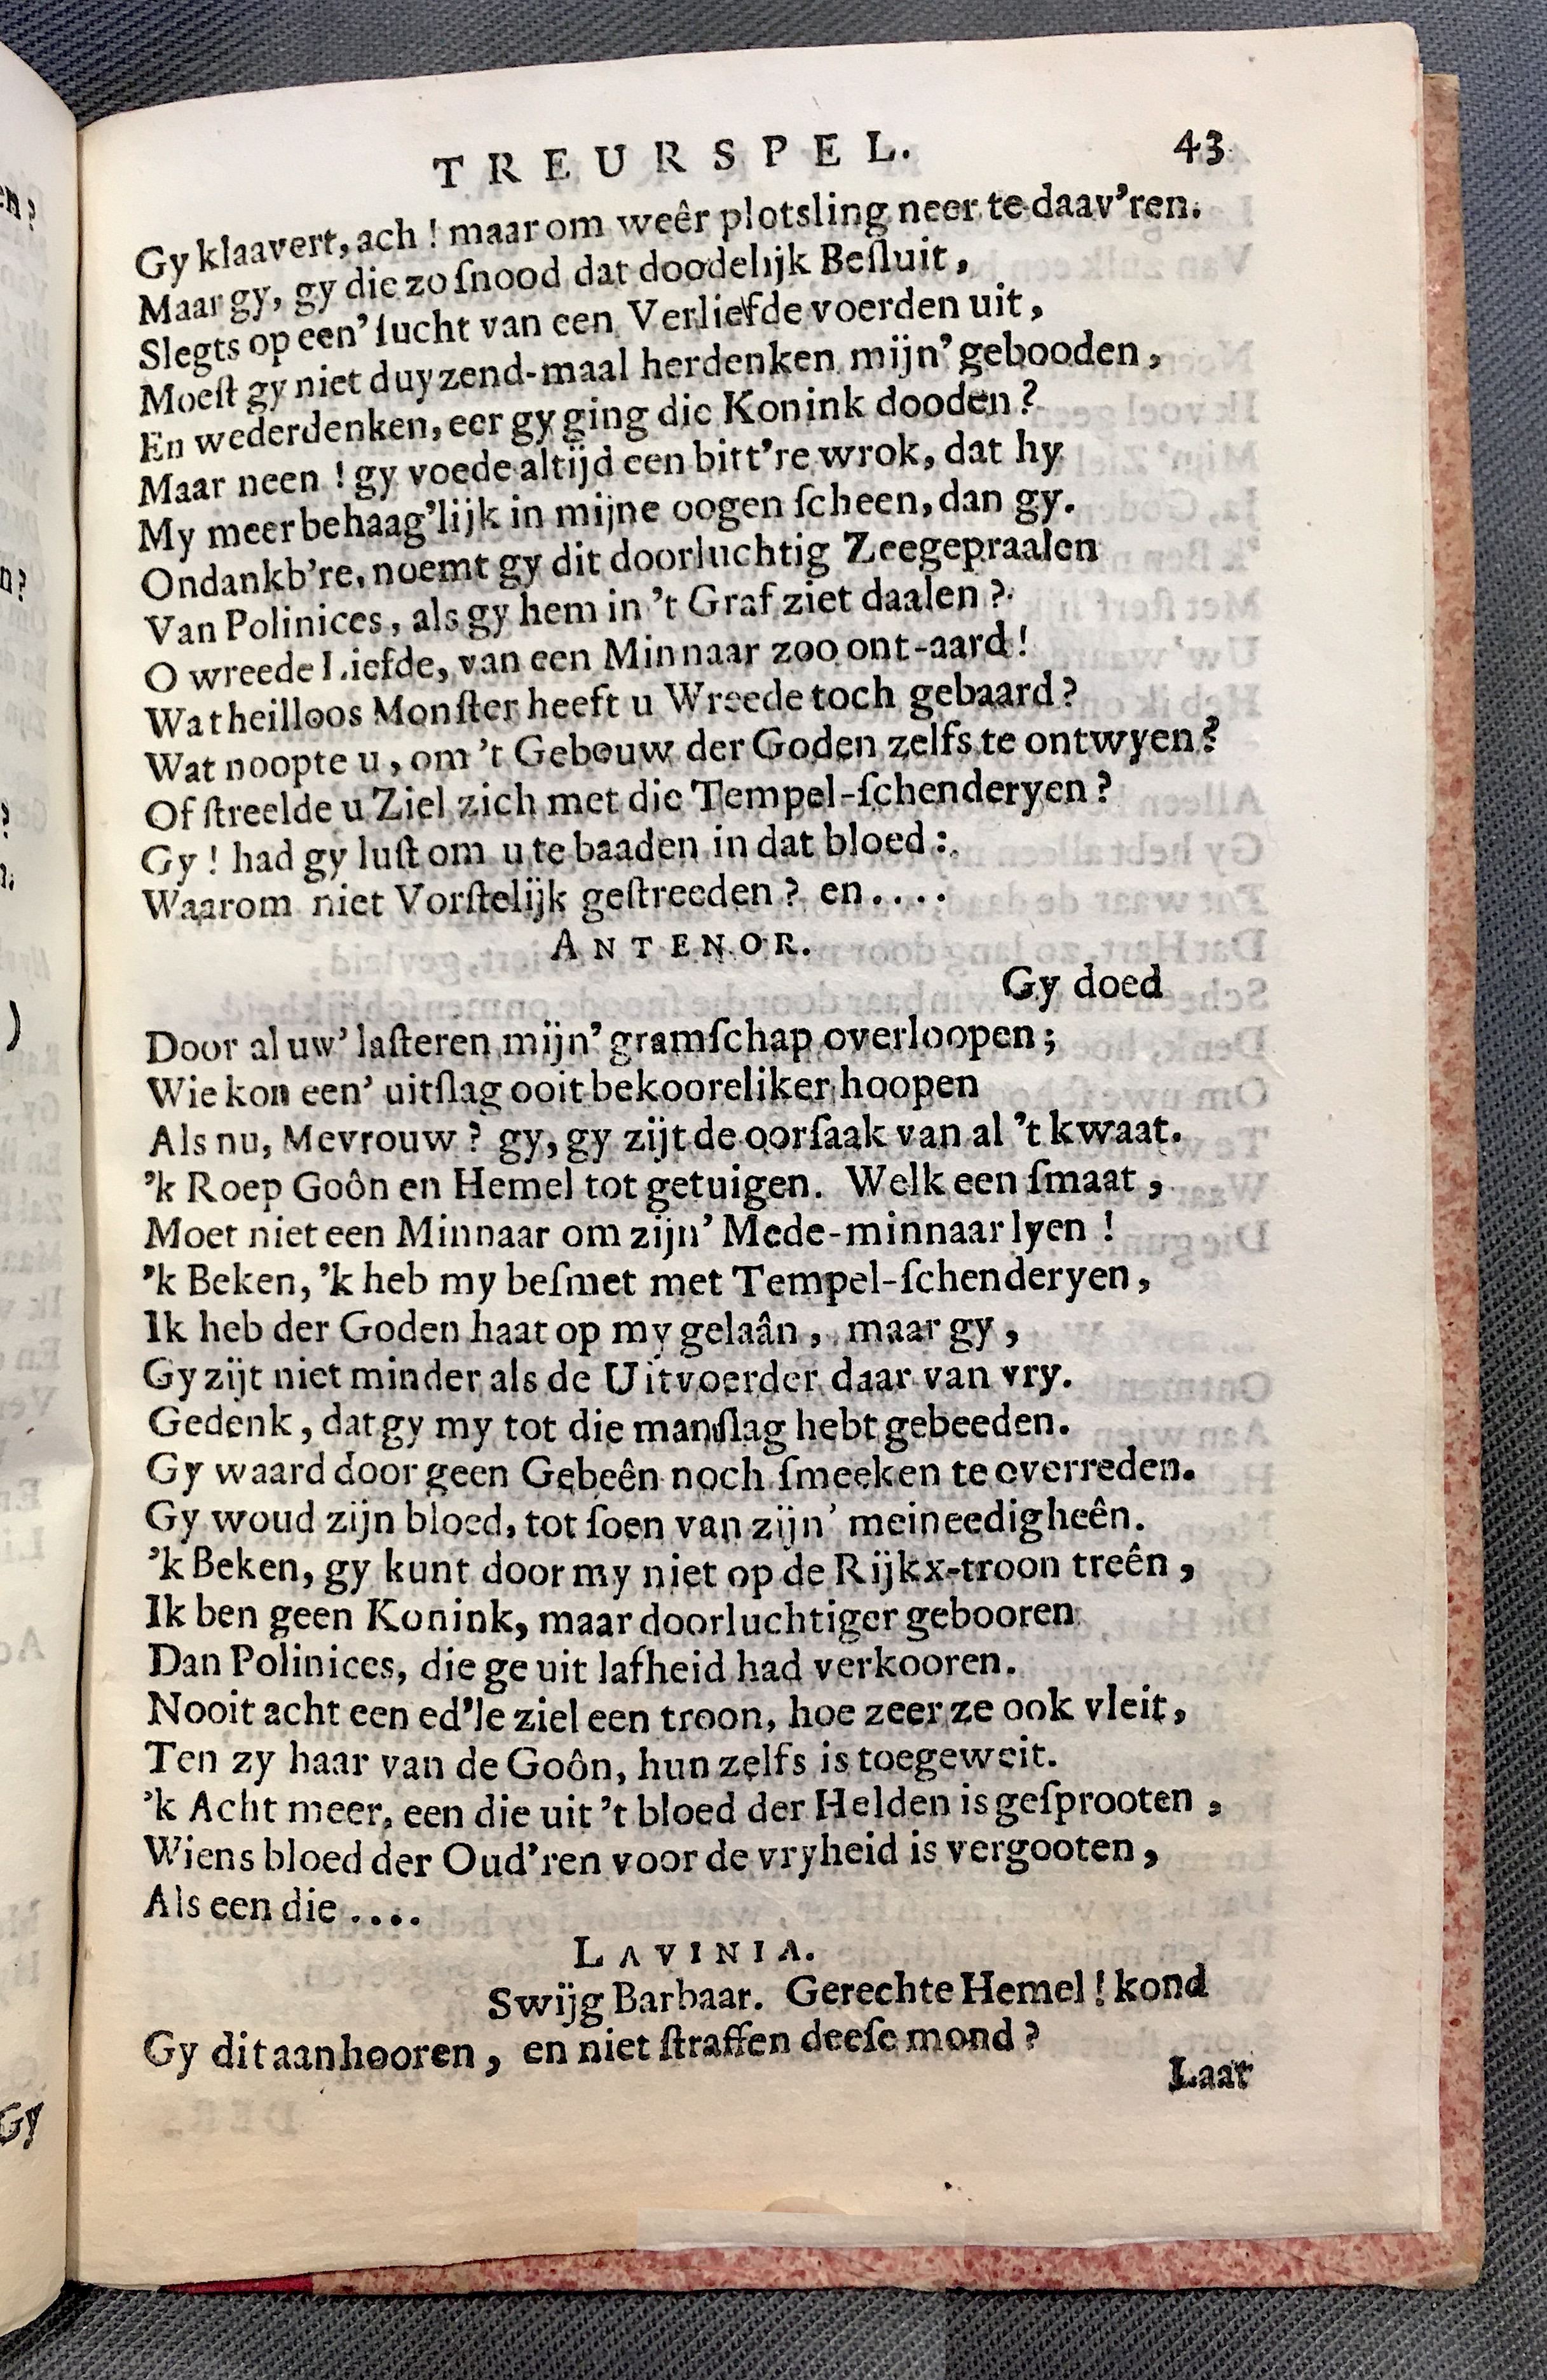 TREURSPEL. 43
Gy klaavert, ach ! maar om weêr plotsling neer te daav'ren.
Maar gy, gy die zo ſnood dat doodelijk Beſluit,
Slegts op een' ſucht van een Verliefde voerden uit,
Moeſt gy niet duyzend-maal herdenken mijn' gebooden,
En wederdenken, eer gy ging die Konink dooden?
Maar neen ! gy voede altijd een bitt're wrok, dat hy
My meer behaag'lijk in mijne oogen ſcheen, dan gy.
Ondankb're, noemt gy dit doorluchtig Zeegepraalen
Van Polinices, als gy hem in 't Graf ziet daalen?
O wreede Liefde, van een Minnaar zoo ont-aard!
Wat heilloos Monſter heeft u Wreede toch gebaard?
Wat noopte u, om 't Gebouw der Goden zelfs te ontwyen?
Of ſtreelde u Ziel zich met die Tempel-ſchenderyen?
Gy! had gy luſt om u te baaden in dat bloed:
Waarom niet Vorſtelijk geſtreeden? en....
ANTENOR.
Gy doed
Door al uw' laſteren mijn' gramſchap overloopen;
Wie kon een' uitſlag ooit bekooreliker hoopen
Als nu, Mevrouw? gy, gy zijt de oorſaak van al 't kwaat.
'k Roep Goôn en Hemel tot getuigen. Welk een ſmaat,
Moet niet een Minnaar om zijn' Mede-minnaar lyen !
'k Beken, 'k heb my beſmet met Tempel-ſchenderyen,
Ik heb der Goden haat op my gelaân, maar gy,
Gy zijt niet minder als de Uitvoerder daar van vry.
Gedenk, dat gy my tot die manſlag hebt gebeeden.
Gy waard door geen Gebeên noch ſmeeken te overreden.
Gy woud zijn bloed, tot ſoen van zijn' meineedigheên.
'k Beken, gy kunt door my niet op de Rijkx-troon treên,
Ik ben geen Konink, maar doorluchtiger gebooren
Dan Polinices, die ge uit lafheid had verkooren.
Nooit acht een ed'le ziel een troon, hoe zeer ze ook vleit,
Ten zy haar van de Goôn, hun zelfs is toegeweit.
'k Acht meer, een die uit 't bloed der Helden is geſprooten,
Wiens bloed der Oud'ren voor de vryheid is vergooten,
Als een die....
LAVINIA.
Swijg Barbaar. Gerechte Hemel! kond
Gy dit aanhooren, en niet ſtraffen deeſe mond?
Laat